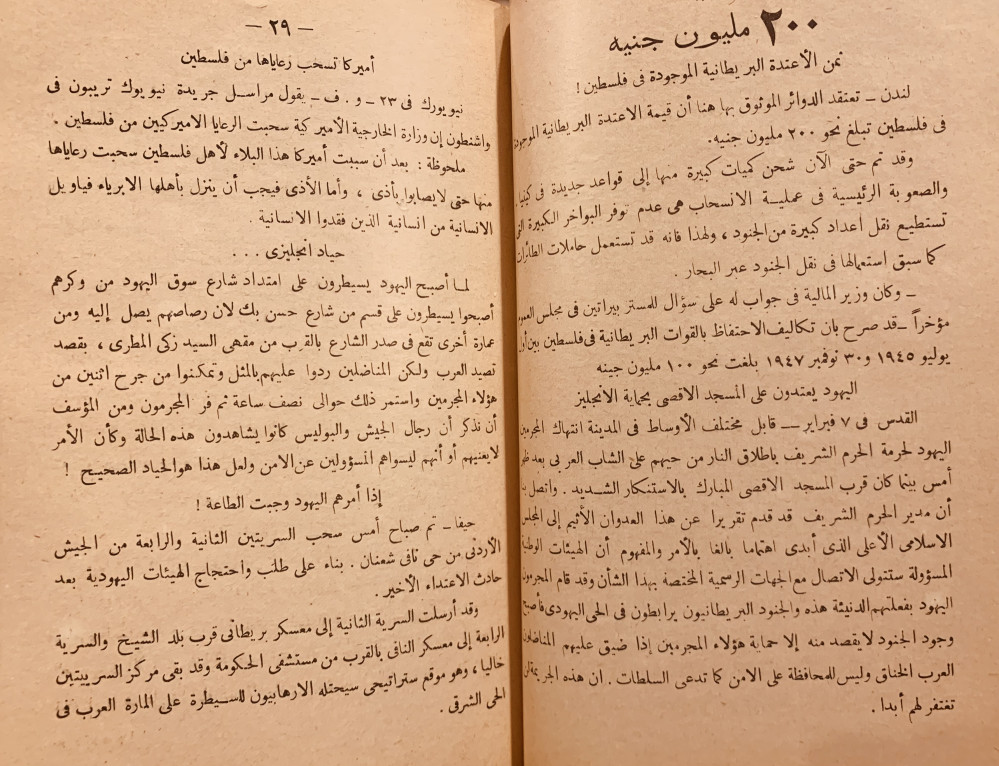 ٢٠٠ مليون جنيه
ثمن الأعتدة البريطانية الموجودة فى فلسطين !
لندن ــ تعتقد الدوائر الموثوق بها هنا أن قيمة الاعتدة البريطانية الموجودة
فى فلسطين تبلغ نحو ٢٠٠ مليون جنيه.
وقد تم حتى الآن شحن كميات كبيرة منها إلى قواعد جديدة فى كينيا.
والصعوبة الرئيسية فى عملية الانسحاب هى عدم توفر البواخر الكبيرة التى
تستطيع نقل أعداد كبيرة من الجنود ، ولهذا فانه قد تستعمل حاملات الطائرات
كما سبق استعمالها فى نقل الجنود عبر البحار .
ــ وكان وزير المالية فى جواب له على سؤال للمستر بيراتين فى مجلس العموم
مؤخراً ــ قد صرح بان تكاليف الاحتفاظ بالقوات البريطانية فى فلسطين بين أول
يوليو ١٩٤٥ و ٣٠ نوفمبر ١٩٤٧ بلغت نحو ١٠٠ مليون جينه
اليهود يعتدون على المسجد الاقصى بحماية الانجليز
القدس فى ٧ فبراير ــ قابل مختلف الأوساط فى المدينة انتهاك المجرمين
اليهود لحرمة الحرم الشريف باطلاق النار من حيهم على الشاب العربى بعد ظهر
أمس بينما كان قرب المسجد الاقصى المبارك بالاستنكار الشديد . واتصل بنا
أن مدير الحرم الشريف قد قدم تقريرا عن هذا العدوان الأثيم إلى المجلس
الاسلامى الأعلى الذى أبدى اهتماما بالغا بالأمر والمفهوم أن الهيئات الوطنية
المسؤولة ستتولى الاتصال مع الجهات الرسمية المختصة بهذا الشأن وقد قام المجرمون
اليهود بفعلتهم الدنيئة هذه والجنود البريطانيون يرابطون فى الحى اليهودى فأصبح
وجود الجنود لا يقصد منه إلا حماية هؤلاء المجرمين إذا ضيق عليهم المناضلون
العرب الخناق وليس للمحافظة على الامن كما تدعى السلطات . ان هذه الجريمة لن
تغتفر لهم أبدا .
ــ ٢٩ ــ
أميركا تسحب رعاياها من فلسطين
نيويورك فى ٢٣ ــ و . ف ــ يقول مراسل جريدة نيويوك تريبون فى
واشنطون إن وزارة الخارجية الأميركية سحبت الرعايا الاميركيين من فلسطين .
ملحوظة : بعد أن سببت أميركا هذا البلاء لأهل فلسطين سحبت رعاياها
منها حتى لا يصابوا بأذى ، وأما الأذى فيجب أن ينزل بأهلها الابرياء فياويل
الانسانية من انسانية الذين فقدوا الانسانية .
حياد انجليزى . . .
لما أصبح اليهود يسيطرون على امتداد شارع سوق اليهود من وكرهم
أصبحوا يسيطرون على قسم من شارع حسن بك لان رصاصهم يصل إليه ومن
عمارة أخرى تقع فى صدر الشارع بالقرب من مقهى السيد زكى المطرى ، بقصد
تصيد العرب ولكن المناضلين ردوا عليهم بالمثل وتمكنوا من جرح اثنين من
هؤلاء المجرمين واستمر ذلك حوالى نصف ساعة ثم فر المجرمون ومن المؤسف
أن نذكر أن رجال الجيش والبوليس كانوا يشاهدون هذه الحالة وكأن الأمر
لايعنيهم أو أنهم ليسوا هم المسؤولين عن الامن ولعل هذا هو الحياد الصحيح !
إذا أمرهم اليهود وجبت الطاعة !
حيفا ــ تم صباح أمس سحب السريتين الثانية والرابعة من الجيش
الأردنى من حى تافى شعنان . بناء على طلب واحتجاج الهيئات اليهودية بعد
حادث الاعتداء الأخير .
وقد أرسلت السرية الثانية إلى معسكر بريطانى قرب بلد الشيخ والسرية
الرابعة إلى معسكر النافى بالقرب من مستشفى الحكومة وقد بقى مركز السرييتين
خاليا ، وهو موقع ستراتيجى سيحتله الارهابيون للسيطرة على المارة العرب فى
الحى الشرقى .